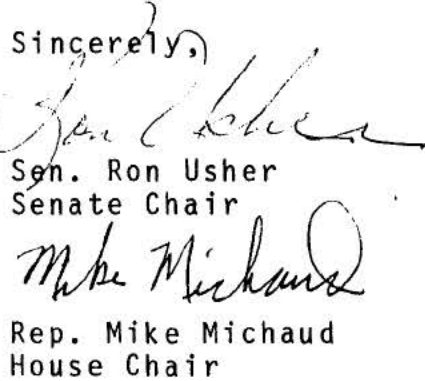 Sincerely,
Ron Usher
Sen. Ron Usher
Senate Chair
Mike Michaud
Rep. Mike Michaud
House Chair